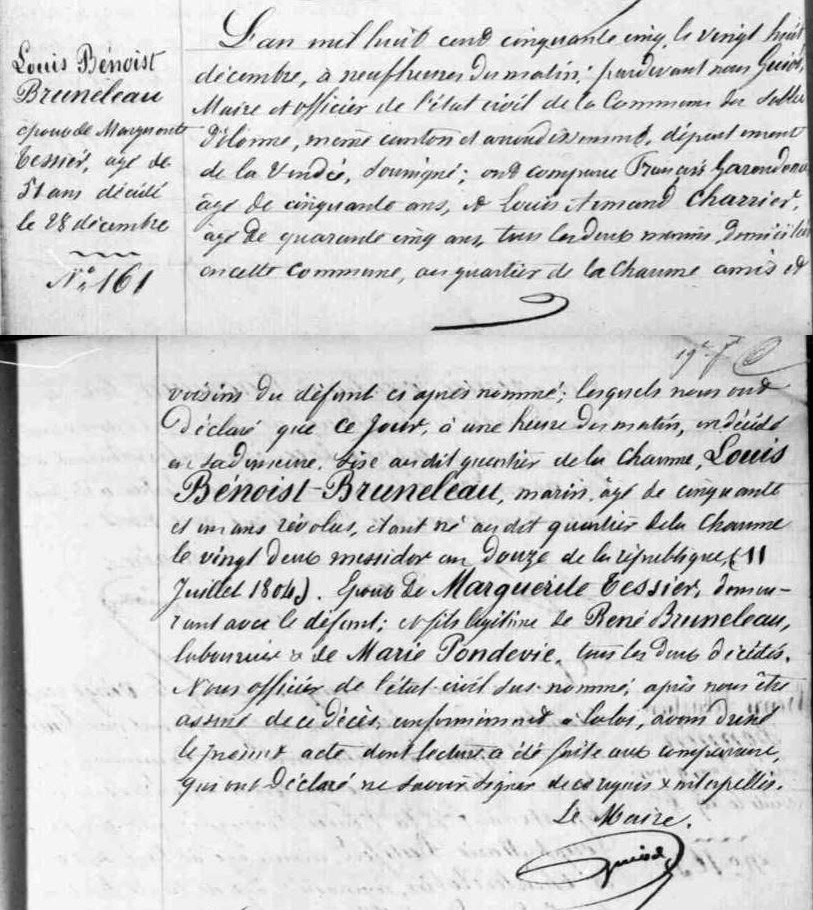 Louis Bénoist
Bruneleau
époux de Marguerite
Tessier, agé de
51 ans décédé
le 28 décembre
N.° 161
L'an mil huit cent cinquante cinq, le vingt huit
décembre, à neuf heures du matin; pardevant nous Guiot,
Maire et officier de l'état civil de la Commune des Sables
d'Olonne, même canton et arrondissement, département
de la Vendée, soussigné; ont comparu François
âgé de cinquante ans, et Louis Armand Charrier,
âgé de quarante cinq ans, tous les deux marins, domiciliés
en cette Commune, au quartier de la Chaume amis et
voisins du défunt ci après nommé; lesquels nous ont
déclaré que ce jour, à une heure du matin, est décédé
en sa demeure, sise au dit quartier de la Chaume, Louis
Bénoist-Bruneleau, marin, âgé de cinquante
et un ans révolus, étant né au dit quartier de la Chaume
le vingt deux messidor an douze de la république, (11
Juillet 1804). Epoux de Marguerite Tessier, demeu-
rant avec le défunt; et fils légitime de René Bruneleau,
laboureur & de Marie Pondevie, tous les deux décédés.
Nous officier de l'état civil sus-nommé, après nous être
assuré de ce décès, conformément à la loi, avons dressé
le présent acte dont lecture a été faite aux comparants,
qui ont déclaré ne savoir signer de ce requis & interpellés.
Le Maire.
Guiot